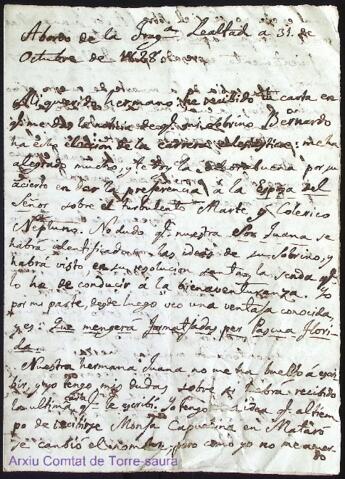 Abordo de la Frag.ta Lealtad a 31. de
Octubre de 1828
Mi querido hermano he recibido tu carta en
q.e me das la noticia de q.e mi Sobrino Bernardo
ha hecho eleccion de la carrera eclesiastica: me ha
alegrado y te doy la enhorabuena por su
acierto en dar la preferencia a la Espoza del
Señor sobre el turbulento Marte y Colerico
Neptuno. No dudo q.e nuestra Sra Juana se
habrá identificado con las ideas de su Sobrino, y
habrá visto en su resolucion santa, la senda q.e
lo ha de conducir a la bienaventuranza. Yo
por mi parte, desde luego veo una ventaja conocida,
y es: Que mengera formatjadas per Pascua flori-
da.
Nuestra hermana Juana no me ha buelto a escri-
bir, y yo tengo mis dudas sobre si habrá recibido
la ultima q.e le escribí, y tengo idea q.e al tiem-
po de vestirse Monja Capuchina en Mataró
se cambió el nombre, pero como yo no me acuer-
do
Arxiu Comtat de Torre-saura